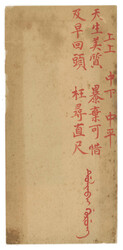 上上 中下 中平
天生美質 暴棄可惜
及早回頭 枉尋直尺